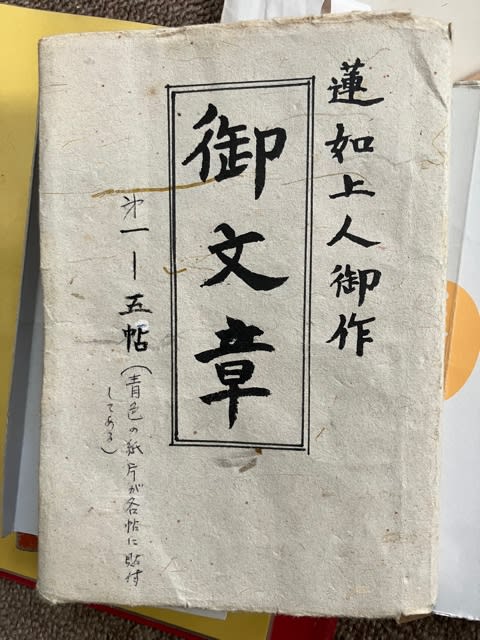 蓮如上人御作
御文章
㐧一ー五帖(青色の紙片が各帖に貼付
してある)